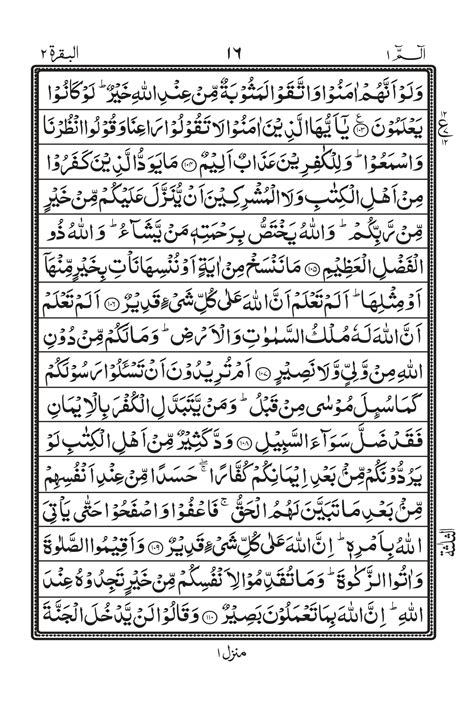 الٓـمّٓ ١ ١٦ البقرة ٢
وَلَوْ اَنَّهُمْ اٰمَنُوْا وَاتَّقَوْا لَمَثُوْبَةٌ مِّنْ عِنْدِ اللّٰهِ خَيْرٌ ؕ لَوْ كَانُوْا
يَعْلَمُوْنَ ﴿۱۰۳﴾ يٰۤاَيُّهَا الَّذِيْنَ اٰمَنُوْا لَا تَقُوْلُوْا رَاعِنَا وَقُوْلُوا انْظُرْنَا
وَاسْمَعُوْا ؕ وَلِلْكٰفِرِيْنَ عَذَابٌ اَلِيْمٌ ﴿۱۰۴﴾ مَا يَوَدُّ الَّذِيْنَ كَفَرُوْا
مِنْ اَهْلِ الْكِتٰبِ وَلَا الْمُشْرِكِيْنَ اَنْ يُّنَزَّلَ عَلَيْكُمْ مِّنْ خَيْرٍ
مِّنْ رَّبِّكُمْ ؕ وَاللّٰهُ يَخْتَصُّ بِرَحْمَتِهٖ مَنْ يَّشَآءُ ؕ وَاللّٰهُ ذُو
الْفَضْلِ الْعَظِيْمِ ﴿۱۰۵﴾ مَا نَنْسَخْ مِنْ اٰيَةٍ اَوْ نُنْسِهَا نَاْتِ بِخَيْرٍ مِّنْهَاۤ
اَوْ مِثْلِهَا ؕ اَلَمْ تَعْلَمْ اَنَّ اللّٰهَ عَلٰى كُلِّ شَىْءٍ قَدِيْرٌ ﴿۱۰۶﴾ اَلَمْ تَعْلَمْ
اَنَّ اللّٰهَ لَهٗ مُلْكُ السَّمٰوٰتِ وَالْاَرْضِ ؕ وَمَا لَكُمْ مِّنْ دُوْنِ
اللّٰهِ مِنْ وَّلِىٍّ وَّلَا نَصِيْرٍ ﴿۱۰۷﴾ اَمْ تُرِيْدُوْنَ اَنْ تَسْئَلُوْا رَسُوْلَكُمْ
كَمَا سُئِلَ مُوْسٰى مِنْ قَبْلُ ؕ وَمَنْ يَّتَبَدَّلِ الْكُفْرَ بِالْاِيْمَانِ
فَقَدْ ضَلَّ سَوَآءَ السَّبِيْلِ ﴿۱۰۸﴾ وَدَّ كَثِيْرٌ مِّنْ اَهْلِ الْكِتٰبِ لَوْ
يَرُدُّوْنَكُمْ مِّنْۢ بَعْدِ اِيْمَانِكُمْ كُفَّارًا ۖۚ حَسَدًا مِّنْ عِنْدِ اَنْفُسِهِمْ
مِّنْۢ بَعْدِ مَا تَبَيَّنَ لَهُمُ الْحَقُّ ۚ فَاعْفُوْا وَاصْفَحُوْا حَتّٰى يَاْتِىَ
اللّٰهُ بِاَمْرِهٖ ؕ اِنَّ اللّٰهَ عَلٰى كُلِّ شَىْءٍ قَدِيْرٌ ﴿۱۰۹﴾ وَاَقِيْمُوا الصَّلٰوةَ
وَاٰتُوا الزَّكٰوةَ ؕ وَمَا تُقَدِّمُوْا لِاَنْفُسِكُمْ مِّنْ خَيْرٍ تَجِدُوْهُ عِنْدَ
اللّٰهِ ؕ اِنَّ اللّٰهَ بِمَا تَعْمَلُوْنَ بَصِيْرٌ ﴿۱۱۰﴾ وَقَالُوْا لَنْ يَّدْخُلَ الْجَنَّةَ
ع
١٢
١٢
منزل ١